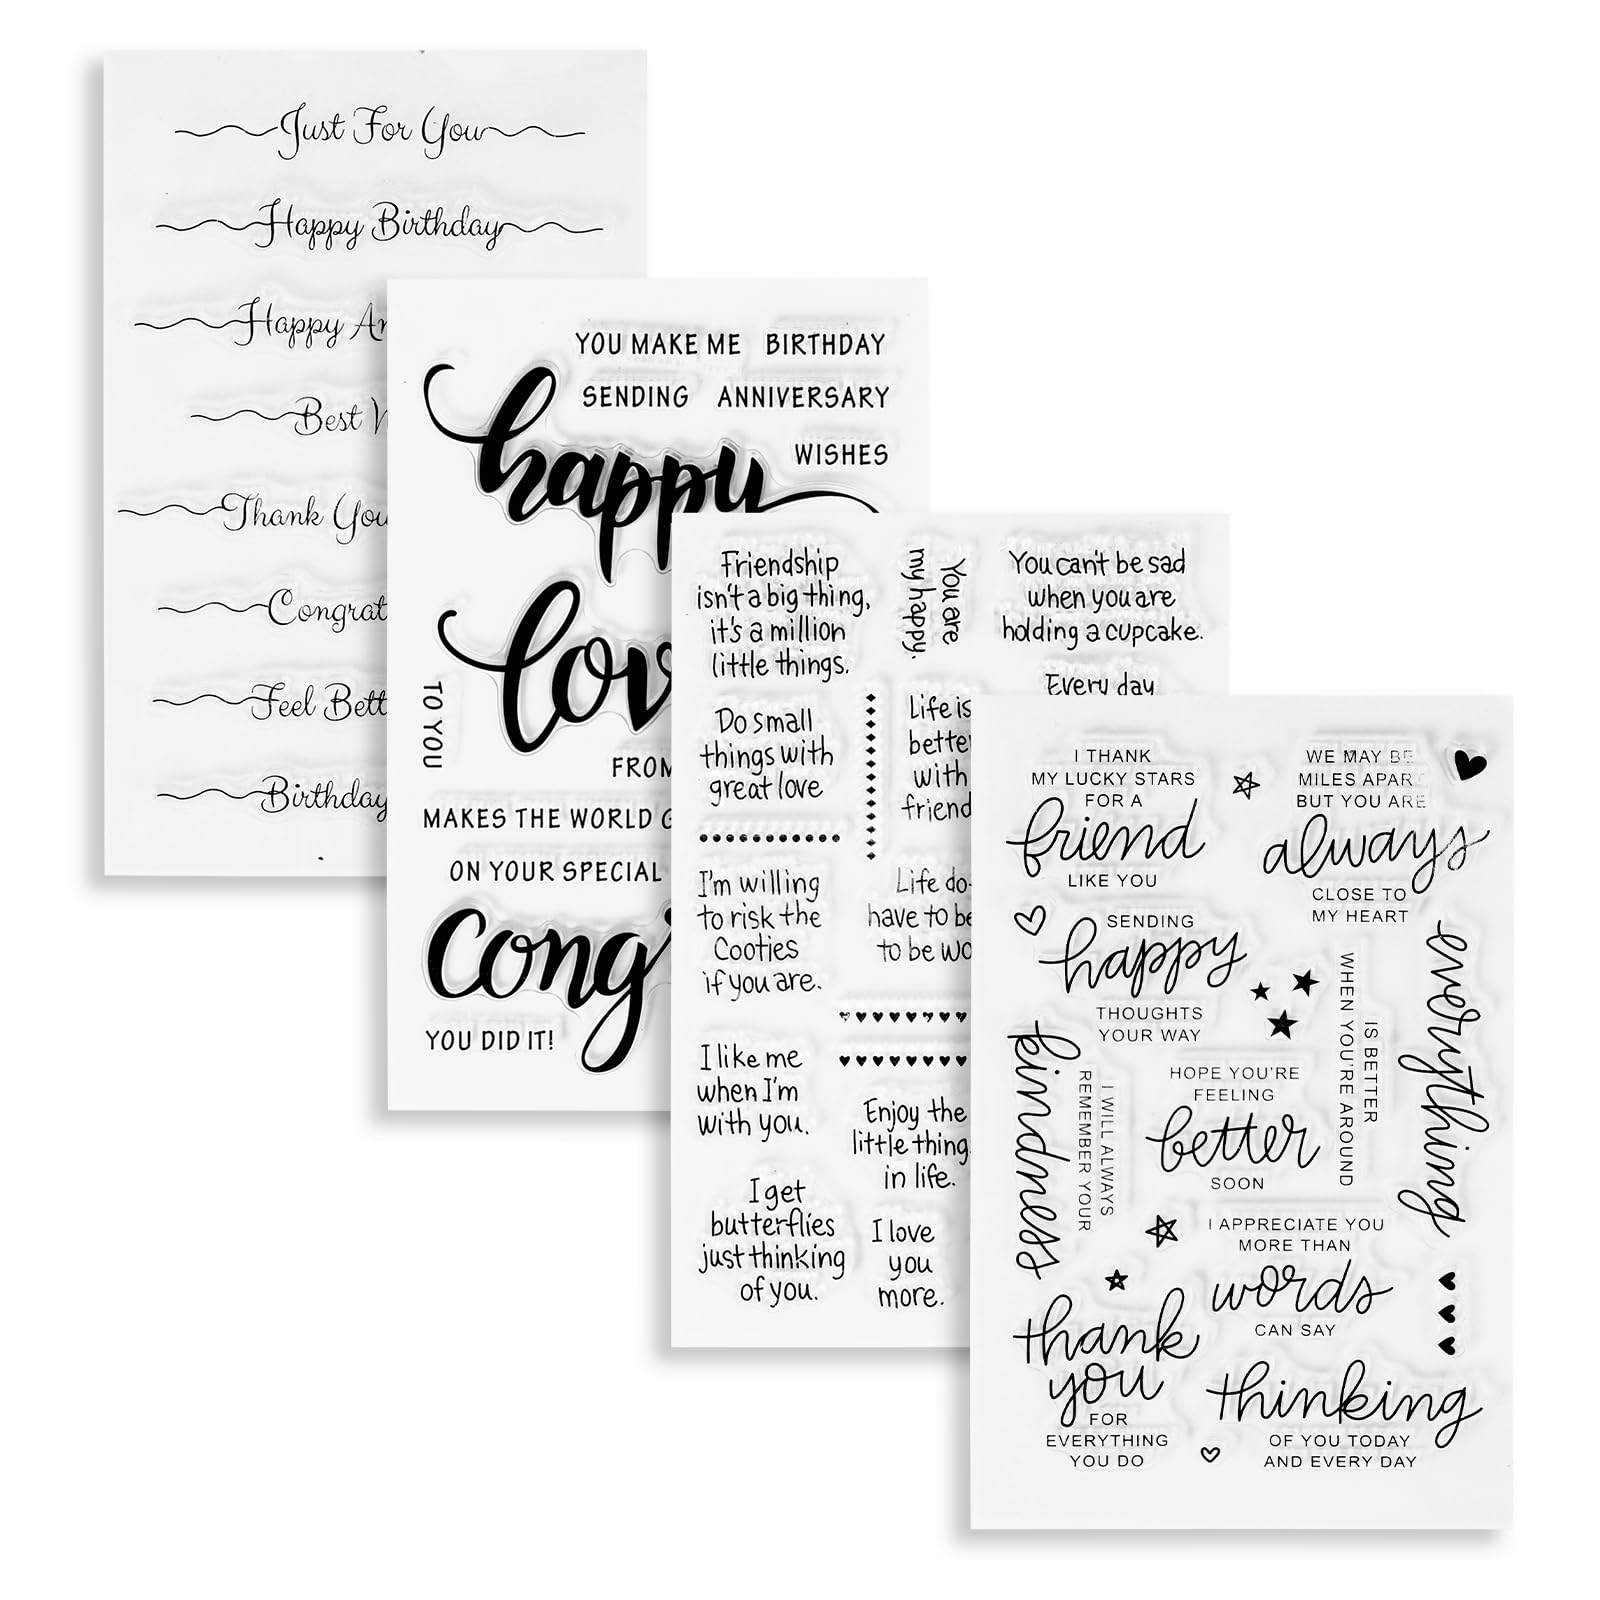 Just For You
Happy Birthday
Happy
Best
Thank You
Feel
Birthday
YOU MAKE ME BIRTHDAY
SENDING ANNIVERSARY
WISHES
happy
TO YOU
FROM
MAKES THE WORLD
ON YOUR SPECIAL
YOU DID IT!
Friendship
isn't a big thing,
it's a million
little things.
You are
my happy.
You can't be sad
when you are
holding a cupcake.
Every day
Do small
things with
great love
Life is
with
I'm willing
to risk the
Cooties
if you are.
Life
have to
to be
I like me
when I'm
with you.
Enjoy the
little
in life.
I get
butterflies
just thinking
of you.
I love
you
more.
I THANK
MY LUCKY STARS
FOR A
friend
LIKE YOU
WE MAY BE
MILES APART
BUT YOU ARE
always
CLOSE TO
MY HEART
SENDING
happy
THOUGHTS
YOUR WAY
everything
IS BETTER
WHEN YOU'RE AROUND
I WILL ALWAYS
REMEMBER YOUR
kindness
HOPE YOU'RE
FEELING
better
SOON
I APPRECIATE YOU
MORE THAN
words
CAN SAY
thank
you
FOR
EVERYTHING
YOU DO
thinking
OF YOU TODAY
AND EVERY DAY